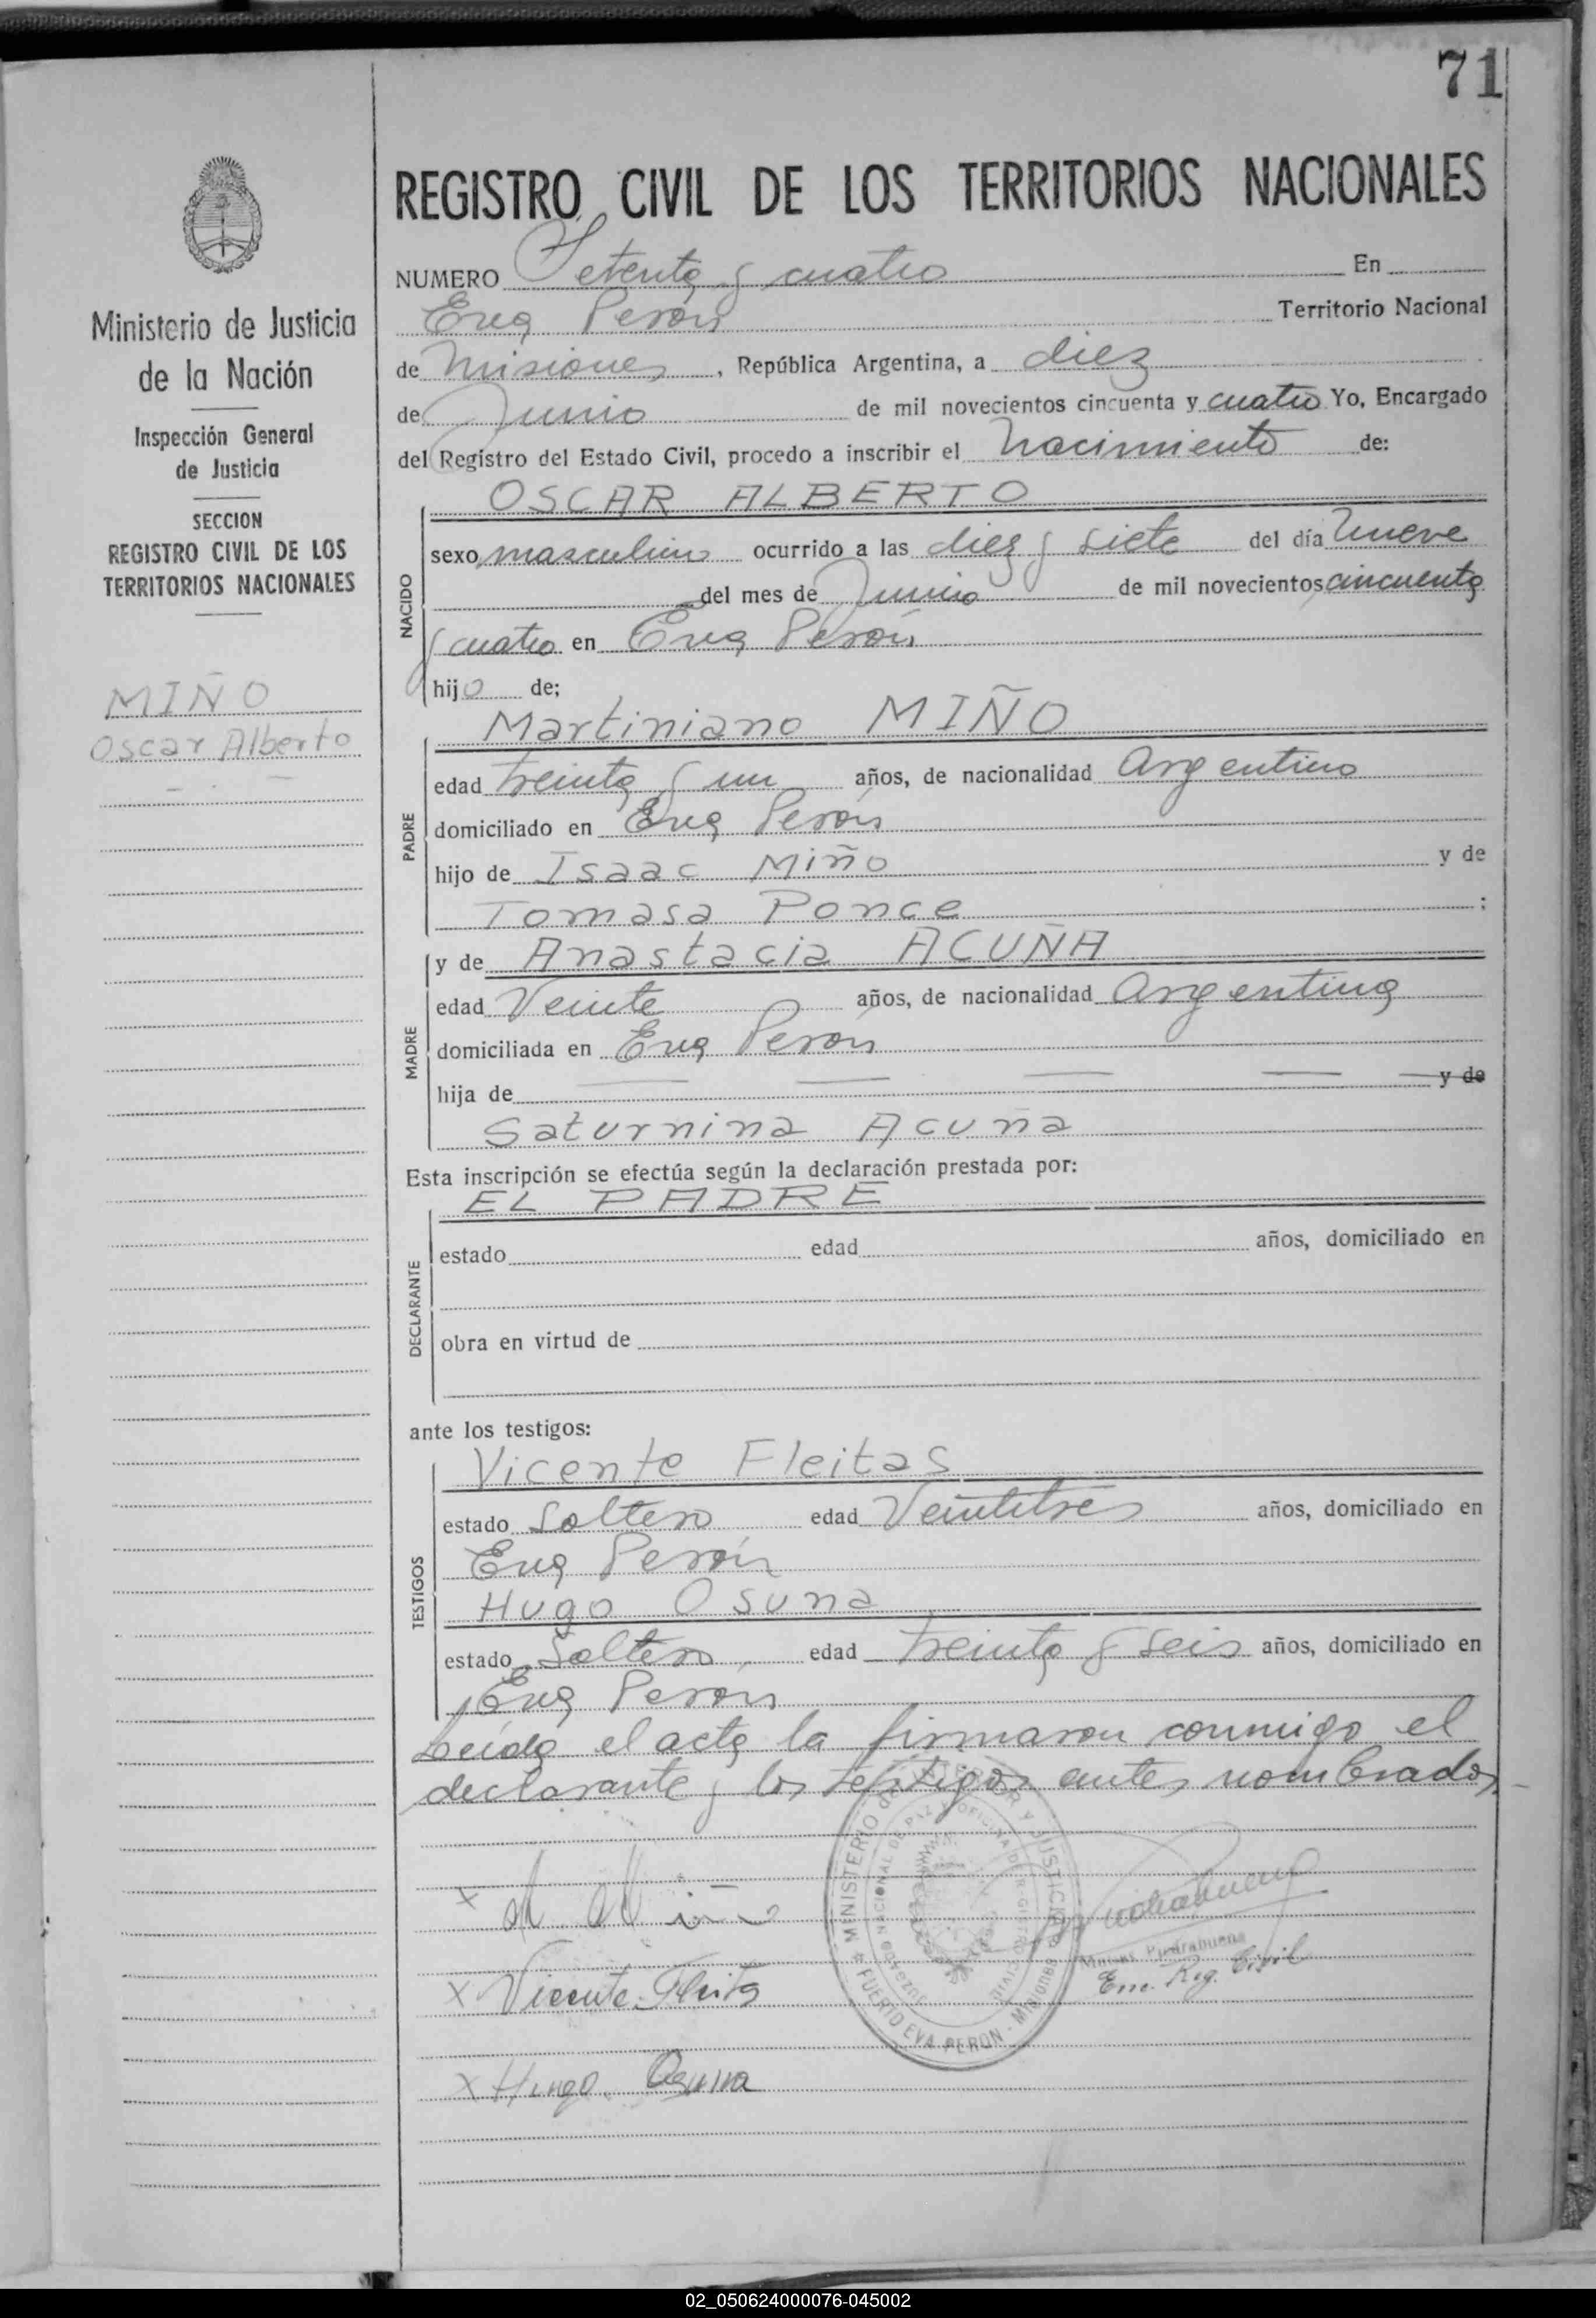 71
REGISTRO CIVIL DE LOS TERRITORIOS NACIONALES
Ministerio de Justicia
de la Nación
Inspección General
de Justicia
SECCION
REGISTRO CIVIL DE LOS
TERRITORIOS NACIONALES
MIÑO
Oscar Alberto
NUMERO Setenta y cuatro En
Eva Perón Territorio Nacional
de Misiones, República Argentina, a diez
de Junio de mil novecientos cincuenta y cuatro Yo, Encargado
del Registro del Estado Civil, procedo a inscribir el Nacimiento de:
NACIDO
OSCAR ALBERTO
sexo masculino ocurrido a las diez y siete del día Nueve
del mes de Junio de mil novecientos cincuenta
y cuatro en Eva Perón
hijo de;
PADRE
Martiniano MIÑO
edad treinta y un años, de nacionalidad Argentino
domiciliado en Eva Perón
hijo de Isaac Miño y de
Tomasa Ponce ;
MADRE
y de Anastacia ACUÑA
edad Veinte años, de nacionalidad Argentina
domiciliada en Eva Perón
hija de — — — — — y de
Saturnina Acuña
Esta inscripción se efectúa según la declaración prestada por:
DECLARANTE
EL PADRE
estado edad años, domiciliado en
obra en virtud de
ante los testigos:
TESTIGOS
Vicente Fleitas
estado Soltero edad Veintitres años, domiciliado en
Eva Perón
Hugo Osuna
estado Soltero, edad treinta y seis años, domiciliado en
Eva Perón
Leida el acta la firmaron conmigo el
declarante y los testigos antes nombrados.-
x M Miño
x Vicente Fleita
x Hugo. Osuna
Piedrabuena
Enc. Reg. Civil
MINISTERIO DEL INTERIOR Y JUSTICIA
JUZGADO NACIONAL DE PAZ Y OFICINA DE REGISTRO CIVIL
PUERTO EVA PERON - Misiones
02_050624000076-045002